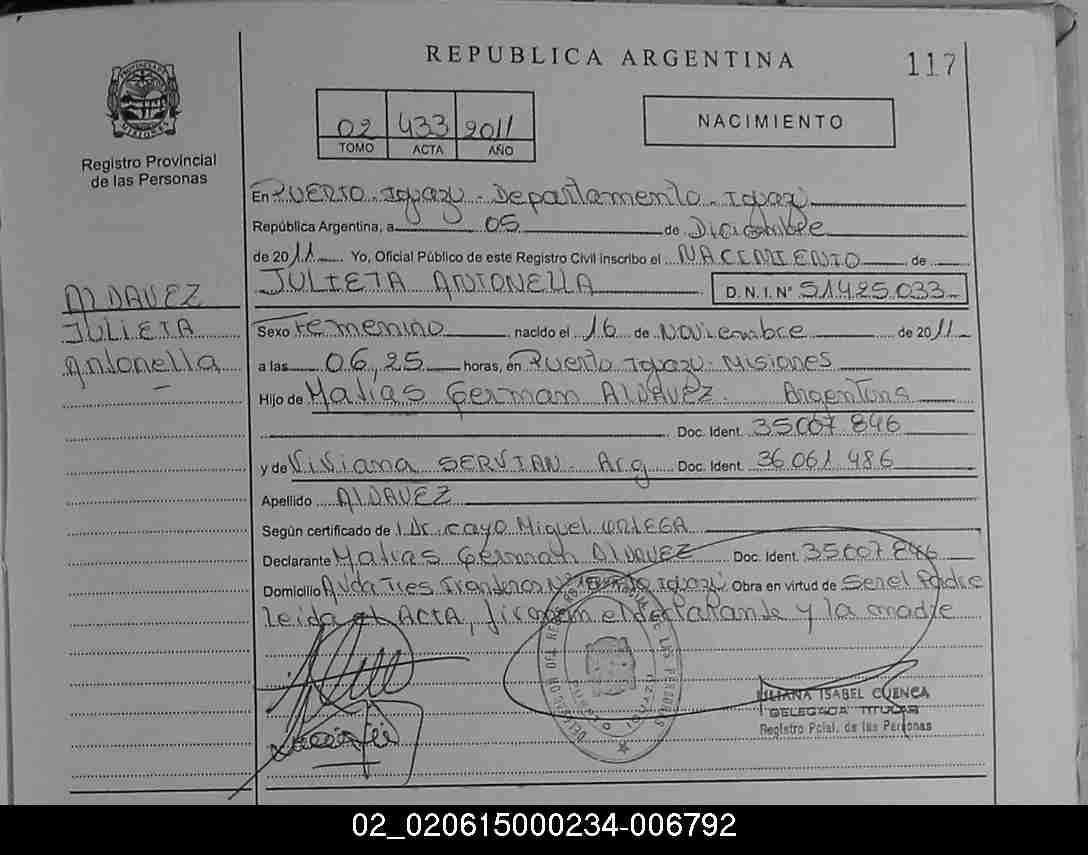 REPUBLICA ARGENTINA
117
PROVINCIA DE
MISIONES
Registro Provincial
de las Personas
02 433 2011
TOMO ACTA AÑO
NACIMIENTO
En PUERTO Iguazú - Departamento Iguazú
República Argentina, a 05 de Diciembre
de 2011 Yo, Oficial Público de este Registro Civil inscribo el NACIMIENTO de
JULIETA ANTONELLA D.N.I.Nº 51425.033
ALDAVEZ
JULIETA
Antonella
Sexo Femenino nacido el 16 de NOViembre de 2011
a las 06,25 horas, en Puerto Iguazú - Misiones
Hijo de Matías Germán ALDAVEZ. Argentina
Doc. Ident. 35.007.846
y de Viviana SERVIAN - Arg Doc. Ident. 36.061.486
Apellido ALDAVEZ
Según certificado de Dr. Cayo Miguel ORTEGA
Declarante Matías Germán ALDAVEZ Doc. Ident. 35.007.846
Domicilio Avda Tres Fronteras Puerto Iguazú Obra en virtud de Ser el Padre
Leida el ACTA, firman el declarante y la madre
LILIANA ISABEL CUENCA
DELEGADA TITULAR
Registro Pcial. de las Personas
02_020615000234-006792